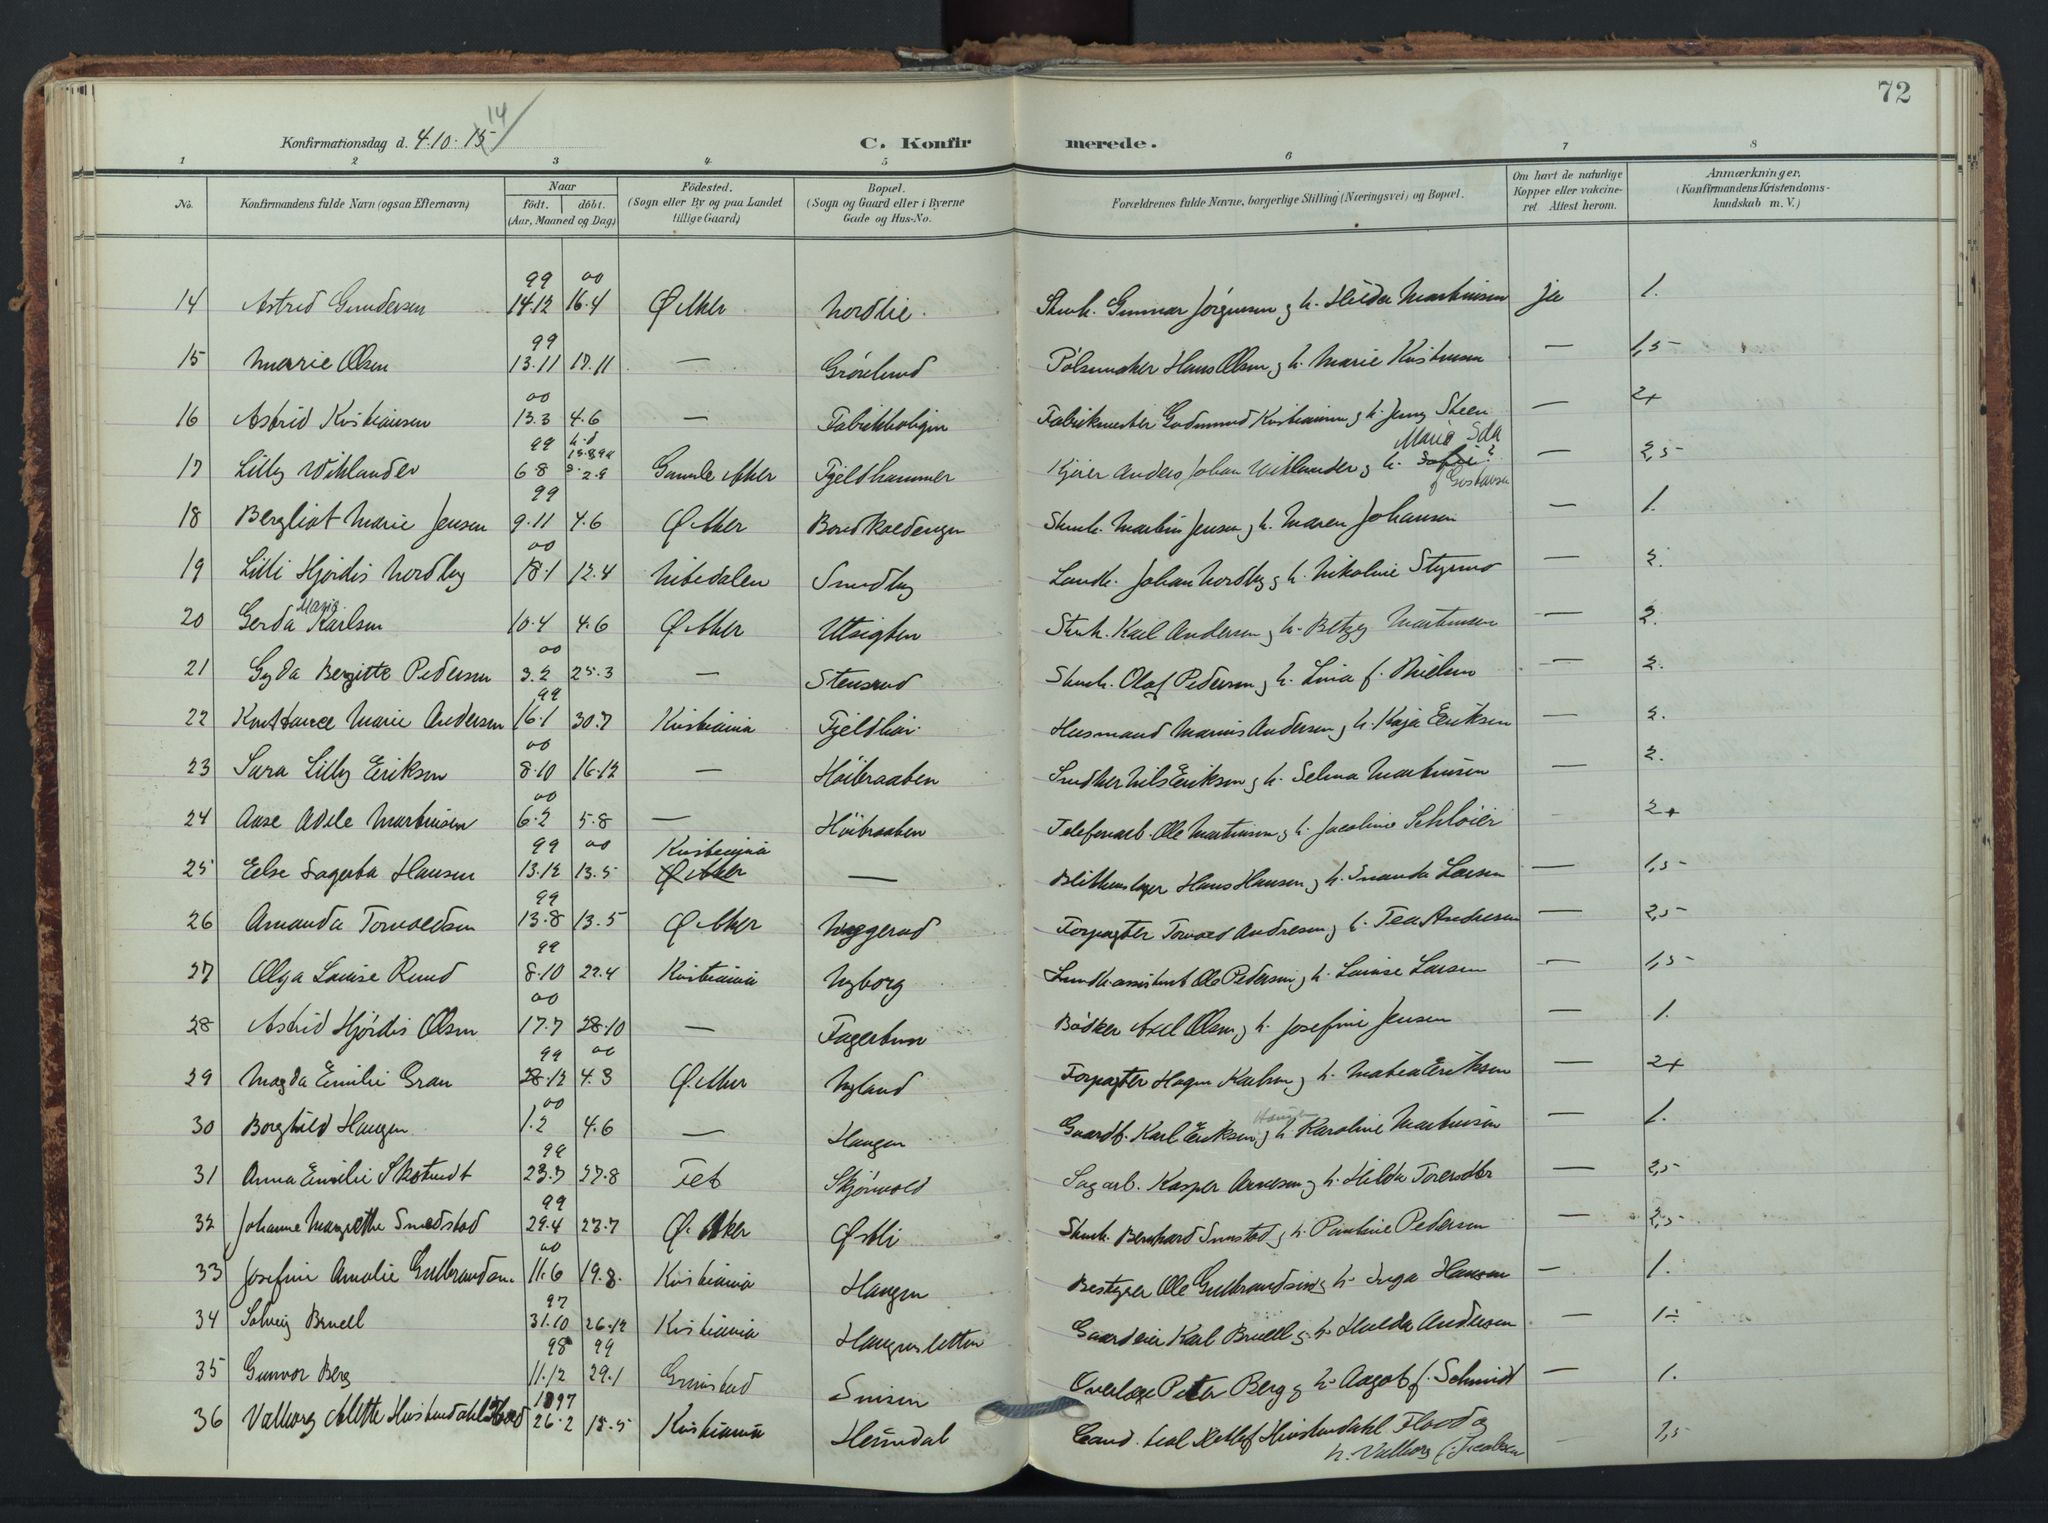 72
Konfirmationsdag d. 4.10.15 14
C. Konfirmerede.
1 2 3 4 5 6 7 8
No. Konfirmandens fulde Navn (ogsaa Efternavn) Naar født. døbt. (Aar, Maaned og Dag) Födested. (Sogn eller By og paa Landet tillige Gaard) Bopæl. (Sogn og Gaard eller i Byerne Gade og Hus-No. Forældrenes fulde Navne, borgerlige Stilling (Næringsvei) og Bopæl. Om havt de naturlige Kopper eller vakcineret Attest herom. Anmærkninger. (Konfirmandens Kristendomskundskab m. V.)
14 Astrid Gundersen 99 14.12 00 16.4 Ø. Aker Nordlie Gunnar Jørgensen og h. Hilda Martinsen ja 1.
15 Marie Olsen 99 13.11 17.11 — Grønlund Pølsemaker Hans Olsen og h. Marie — 1,5
16 Astrid Kristiansen 00 13.3 4.6 — Fabrikboligen Fabrikmester Gudmund Kristiansen og h. Jenny Steen — 2+
17 Lilly Wiklander 99 6.8 Gamle Aker Fjeldhammer Kjører Anders Johan Wiklander og h. Sofie? Maria Ida f. Gustavsen — 2,5
18 Bergliot Marie Jensen 99 9.11 4.6 Ø. Aker Martin Jensen og h. Maren Johansen — 1.
19 Lilli Hjørdis Nordby 00 18.1 12.4 Nitedalen Smedby Landh. Johan Nordby og h. Nikoline — 2.
20 Gerda Marie Karlsen 10.4 4.6 Ø. Aker Utsigten Karl Andersen og h. Betzy Martinsen — 2.
21 Gyda Bergitte Pedersen 00 3.2 25.3 — Stensrud Olaf Pedersen og h. Lina f. Nielsen — 2.
22 Konstance Marie Andersen 99 16.1 30.7 Kristiania Fjeldhøi Husmand Marius Andersen og h. Kaja Eriksen — 2.
23 Sara Lilly Eriksen 00 8.10 16.12 — Høibraaten Snedker Nils Eriksen og h. Selma Martinsen — 2.
24 Aase Adele Martinsen 00 6.2 5.8 — Höibraaten Telefonarb. Ole Martinsen og h. Jacobine Schløier — 2+
25 Else Hansen 99 13.12 00 13.5 Kristiania Ø. Aker — Blikkenslager Hans Hansen og h. Larsen — 1,5
26 Amanda Torvaldsen 99 13.8 13.5 Ø. Aker Forpagter Torvald Andresen og h. Tea Andresen — 2,5
27 Olga Louise Ruud 99 8.10 22.4 Kristiania Nyborg Ole Pedersen og h. Louise Larsen — 1,5
28 Astrid Hjørdis Olsen 00 17.7 28.10 — Fagertun Bødker Axel Olsen og h. Josefine Jensen — 1.
29 Magda Emilie Gran 99 28.12 00 4.3 Ø. Aker Nyland Forpagter Hagen Karlsen og h. Matea Eriksen — 2+
30 Borghild Haugen 00 1.2 4.6 — Haugen Gaardb. Karl Eriksen Haugen og h. Karoline Martinsen — 1.
31 Anna Emilie 99 23.7 27.8 Fet Skjønvold Sagarb. Kasper Arnesen og h. Hilda — 2,5
32 Johanne Margrethe Smedstad 99 29.4 23.7 Ø. Aker Østli Bernhard og h. Pauline Pedersen — 2,5
33 Josefine Amalie Gulbrandsen 00 11.6 19.8. Kristiania Haugen Bestyrer Ole Gulbrandsen og h. Inga Hansen — 1.
34 Solveig Bruell 97 31.10 26.12 Kristiania Haugensletten Gaardeier Karl Bruell og h. Hulda Andersen — 1÷
35 Gunvor Berg 98 11.12 99 29.1 Grimstad Overlæge Peter Berg og h. Aagot f. Schmidt — 1.
36 Valborg Alette Flood 1897 26.2 18.5 Kristiania Heimdal Cand. real Flood og h. Valborg f. Jacobsen — 1,5